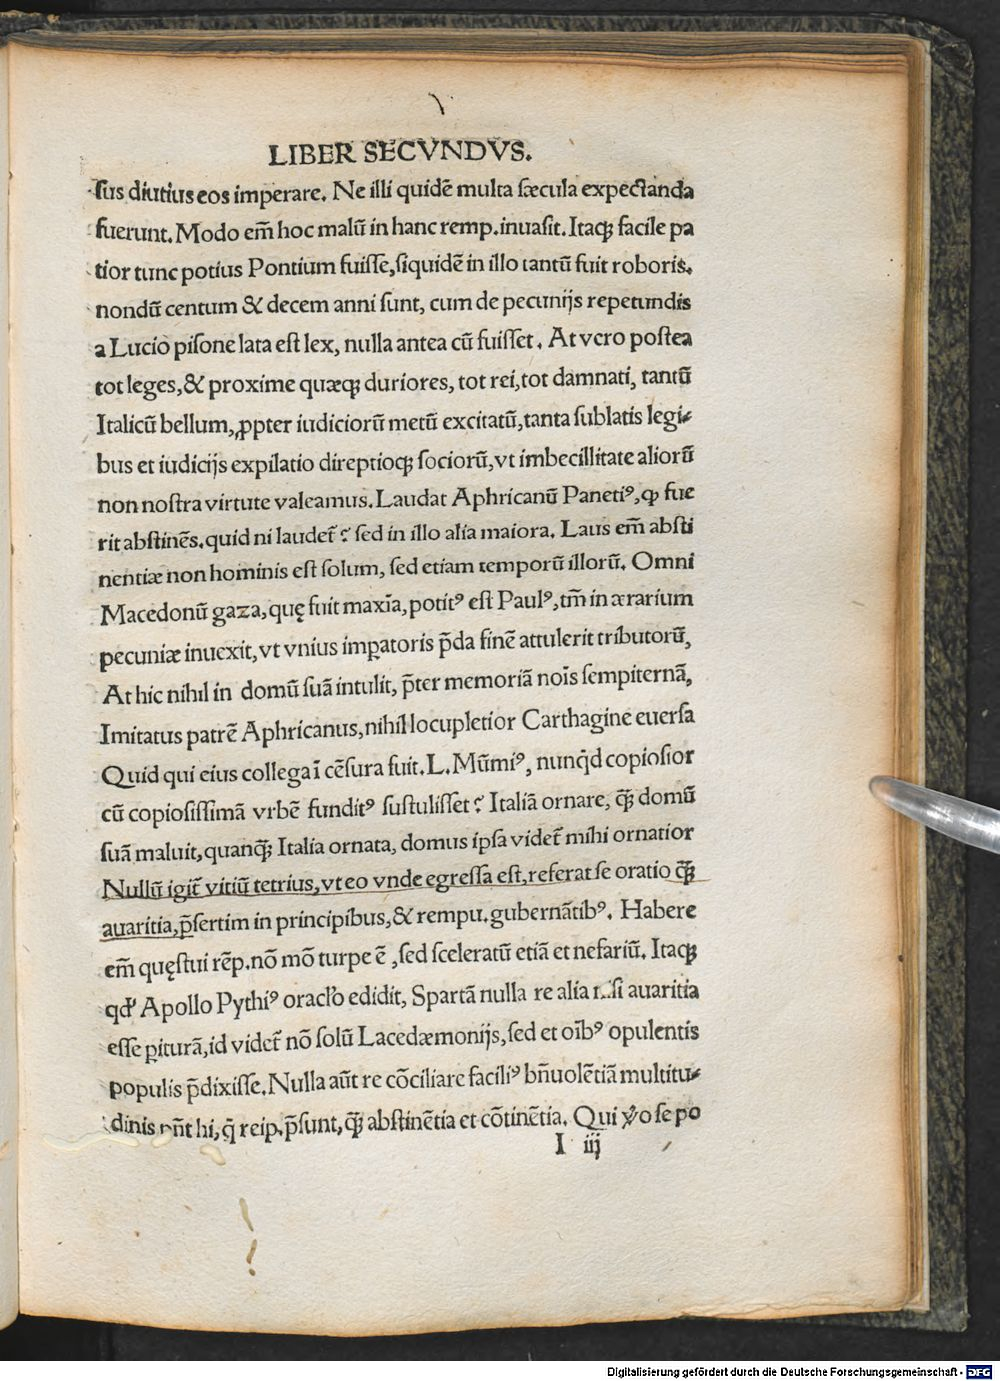 LIBER SECVNDVS.
sus diutius eos imperare. Ne illi quidē multa sæcula expectanda
fuerunt. Modo em̄ hoc malū in hanc remp. inuasit. Itaqꝫ facile pa
tior tunc potius Pontium fuisse, siquidē in illo tantū fuit roboris.
nondū centum & decem anni sunt, cum de pecunijs repetundis
a Lucio pisone lata est lex, nulla antea cū fuisset. At vero postea
tot leges, & proxime quæqꝫ duriores, tot rei, tot damnati, tantū
Italicū bellum, ꝓpter iudiciorū metū excitatū, tanta sublatis legi⸗
bus et iudicijs expilatio direptioqꝫ sociorū, vt imbecillitate aliorū
non nostra virtute valeamus. Laudat Aphricanū Panetiꝰ, ꝙ fue
rit abstinēs. quid ni laudet̄? sed in illo alia maiora. Laus em̄ absti
nentiæ non hominis est solum, sed etiam temporū illorū. Omni
Macedonū gaza, quę fuit maxīa, potitꝰ est Paulꝰ, tm̄ in ærarium
pecuniæ inuexit, vt vnius imꝑatoris p̄da finē attulerit tributorū,
At hic nihil in domū suā intulit, p̄ter memoriā nōis sempiternā,
Imitatus patrē Aphricanus, nihil locupletior Carthagine euersa
Quid qui eius collega ī cēsura fuit. L. Mūmiꝰ, nunqͥd copiosior
cū copiosissimā vrbē funditꝰ sustulisset? Italiā ornare, qꝫ̄ domū
suā maluit, quanqꝫ̄ Italia ornata, domus ipsa videt̄ mihi ornatior
Nullū igit̄ vitiū tetrius, vt eo vnde egressa est, referat se oratio qꝫ̄
auaritia, p̄sertim in principibus, & rempu. gubernātibꝰ. Habere
em̄ quęstui rēp. nō mō turpe ē, sed sceleratū etiā et nefariū. Itaqꝫ
qd̓ Apollo Pythiꝰ oracl̓o edidit, Spartā nulla re alia nisi auaritia
esse ꝑiturā, id videt̄ nō solū Lacedæmonijs, sed et oībꝰ opulentis
populis p̄dixisse. Nulla aūt re cōciliare faciliꝰ bn̄uolētiā multitu⸗
dinis pn̄t hi, q̄ reip. p̄sunt, qꝫ̄ abstinētia et cōtinētia. Qui v̓o se po
I iij
Digitalisierung gefördert durch die Deutsche Forschungsgemeinschaft - DFG